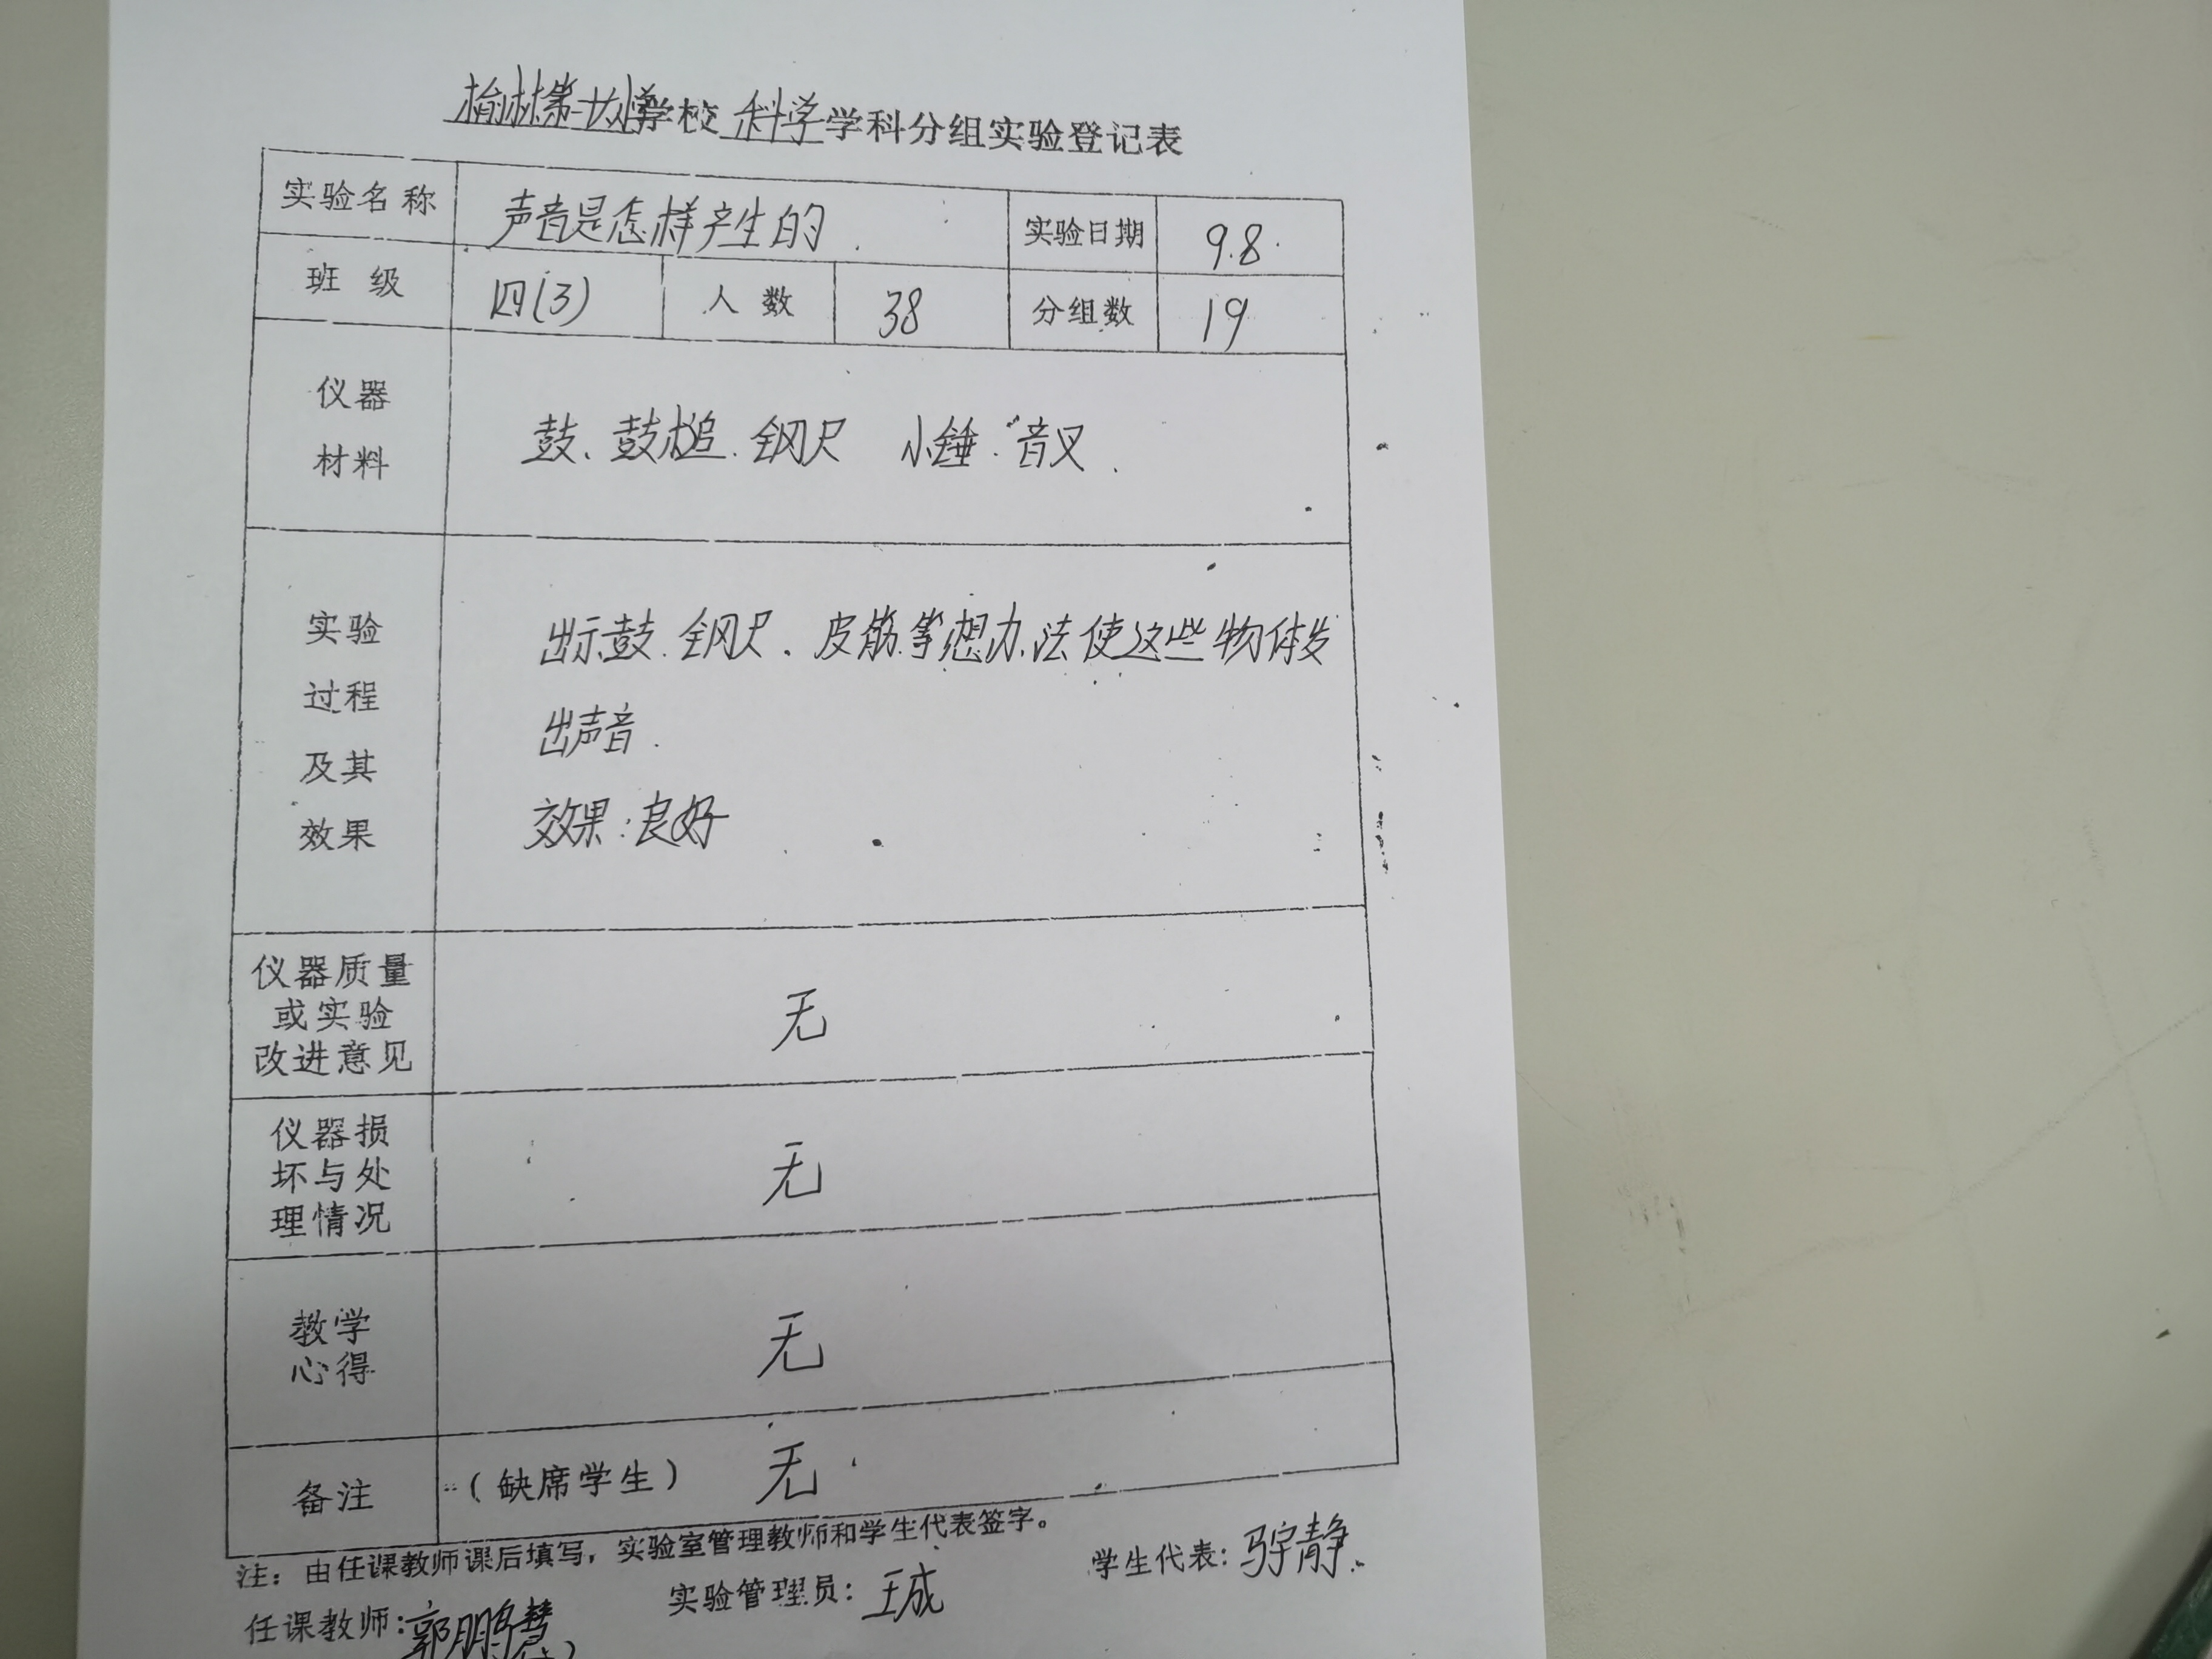 榆林第十小学学校 科学 学科分组实验登记表
实验名称 声音是怎样产生的. 实验日期 9.8.
班级 四(3) 人数 38 分组数 19
仪器
材料
鼓、鼓槌.钢尺 小锤.音叉.
实验
过程
及其
效果
出示鼓.钢尺.皮筋等想办法使这些物体发
出声音.
效果:良好
仪器质量
或实验
改进意见
无
仪器损
坏与处
理情况
无
教学
心得
无
备注 (缺席学生) 无
注：由任课教师课后填写，实验室管理教师和学生代表签字。
任课教师:郭鹏慧 实验管理员: 王成 学生代表: 静